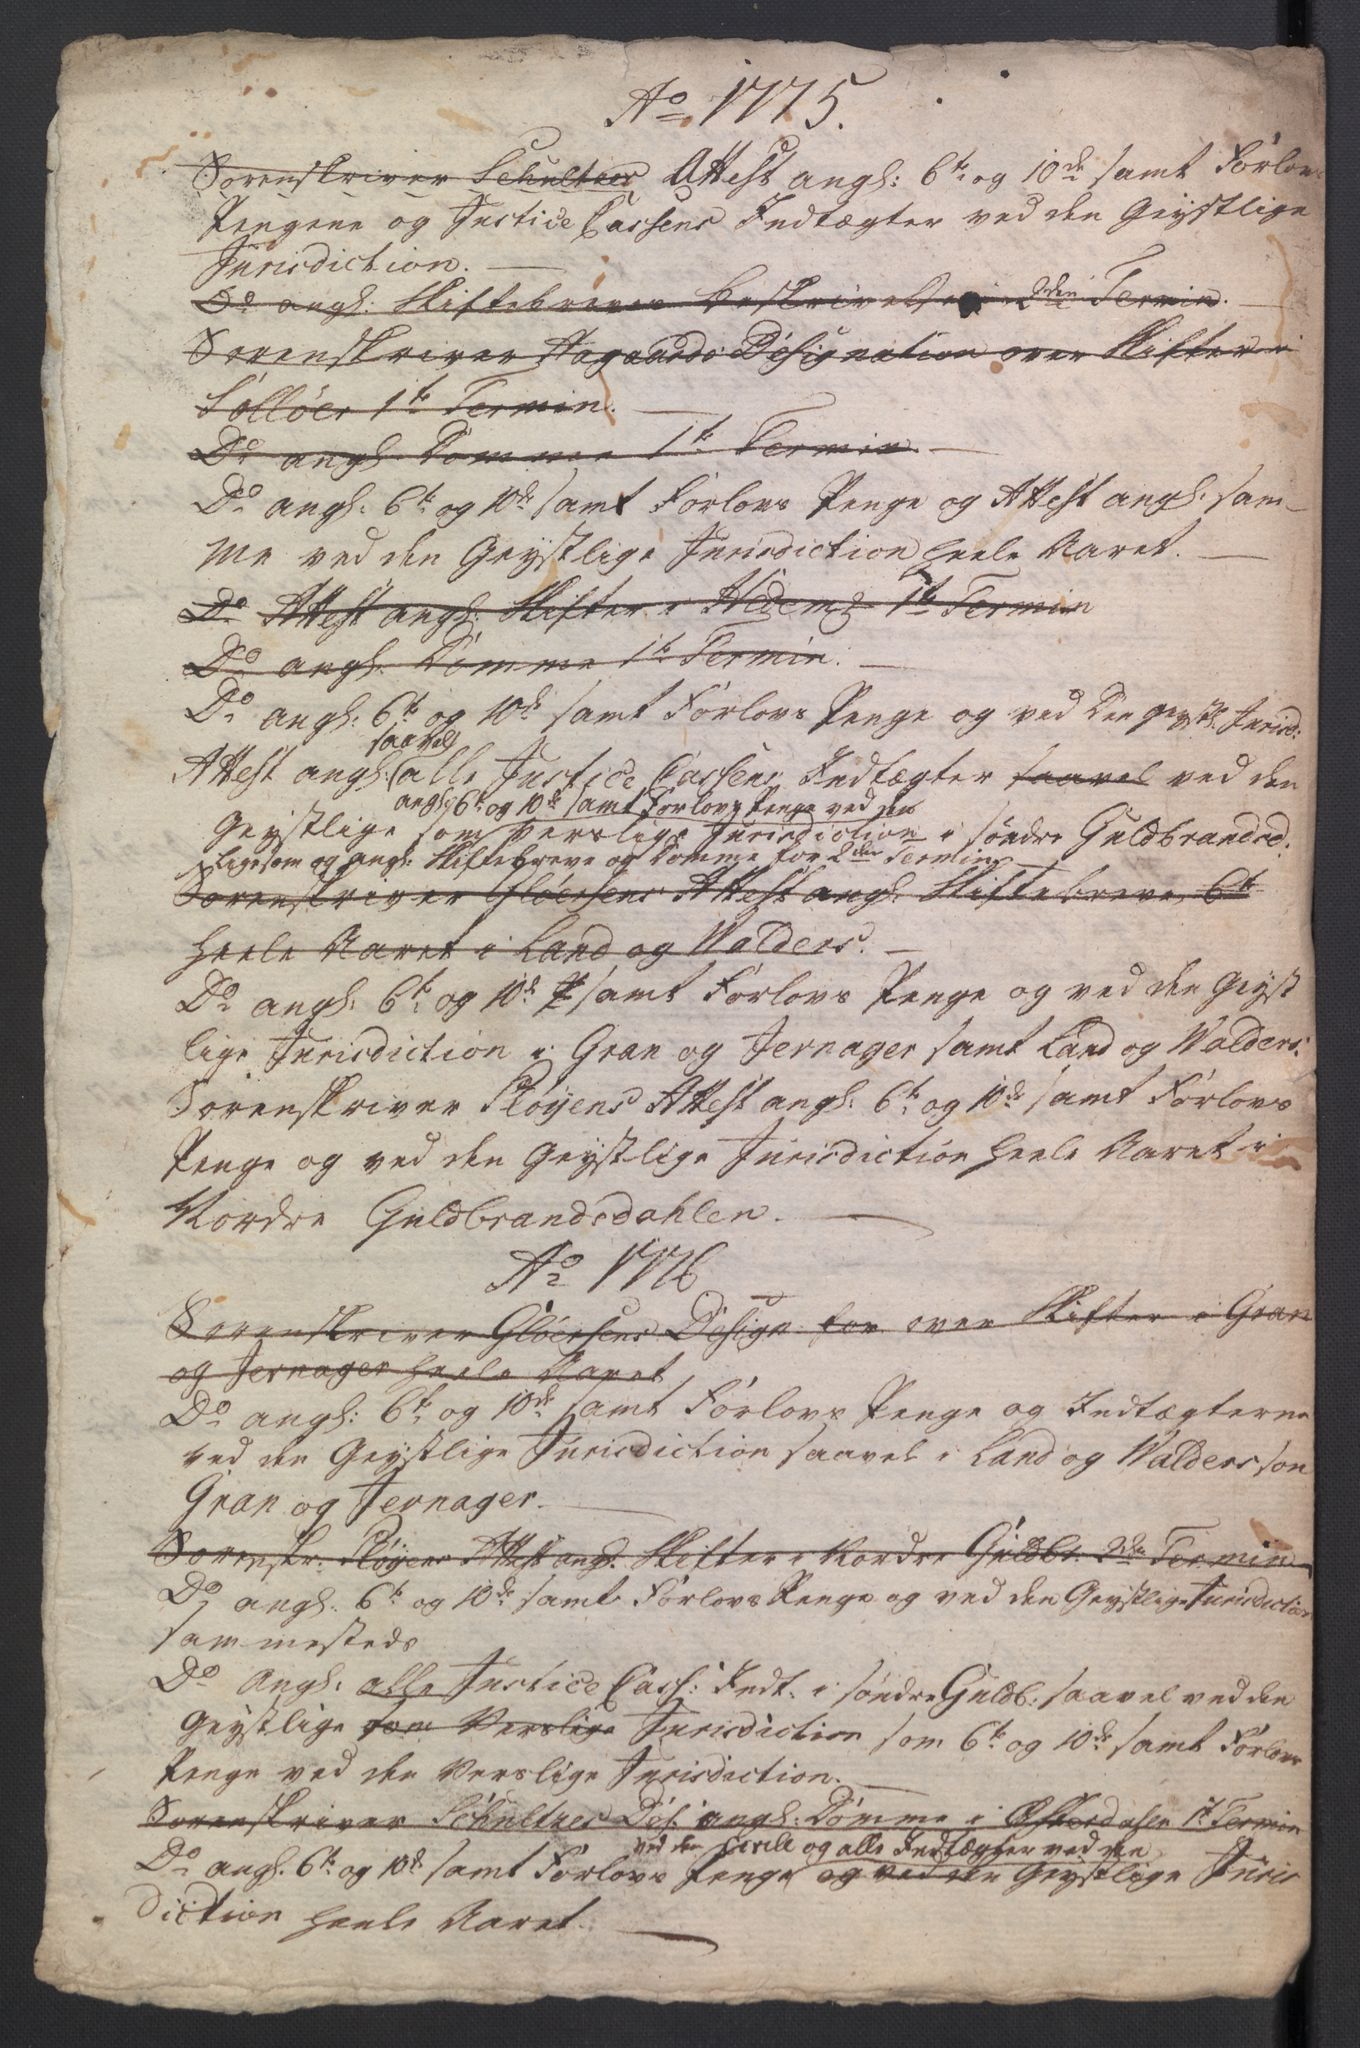 Ao 1775.
Sorenskriver Schultzes Attest angl: 6te og 10de samt Forlovs
Pengene og Justice Cassens Indtægter ved den Geystlige
Jurisdiction.
Do angl: Skiftebreves beskrivelse 2den Termin.
Sorenskriver Aagaards Designation over Skifter i
Solløer 1te Termin.
Do angl. Domme 1te Termin.
Do angl: 6te og 10de samt Forlovs Penge og Attest angl. sam-
me ved den Geystlige Jurisdiction heele Aaret.
Do Attest angl: Skifter i 1te Termin
Do angl. Domme 1te Termin.
Do angl: 6te og 10de samt Forlovs Penge og ved den geystl. Jurisd:
saavel
Attest angl: alle Justice Cassens Indtægter saavel ved den
angl: 6te og 10de samt Forlovs Penge ved den
Geystlige som Verslige Jurisdiction i søndre Guldbrandsd.
Ligesom og angl: Skiftebreve og Domme for 2den Termin
Sorenskriver Gløersens Attest angl. Skiftebreve, 6te
heele Aaret i Land og Walders.
Do angl: 6te og 10de samt Forlovs Penge og ved den Geyst
lige Jurisdiction i Gran og Jernager samt Land og Walders.
Sorenskriver Pløyens Attest angl: 6te og 10de samt Forlovs
Penge og ved den Geystlige Jurisdiction heele Aaret i
Nordre Guldbrandsdahlen.
Ao 1776
Sorenskriver Gløersens Design for over Skifter i Gran
og Jernager heele Aaret
Do angl: 6te og 10de samt Forlovs Penge og Indtægterne
ved den Geystlige Jurisdiction saavel i Land og Walders som
Gran og Jernager.
Sorenskr. Pløyens Attest angl. Skifter i Nordre Guldbr. 2den Termin
Do angl. 6te og 10de samt Forlovs Penge og ved den Geystlige Jurisdiction
sammesteds
Do Angl: alle Justice Cass: Indt. i søndre Guldb: saavel ved den
Geystlige som Verslige Jurisdiction som 6te og 10de samt Forlovs
Penge ved den Verslige Jurisdiction.
Sorenskriver Schultzes Des: angl: Domme i Østerdalen 1te Termin
ved den Civile og alle Indtægter ved den
Do angl. 6te og 10de samt Forlovs Penge og ved den Geystlige Juris
diction heele Aaret.